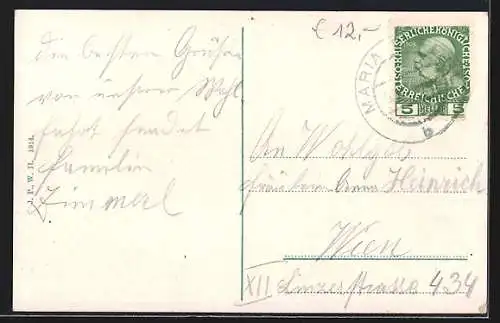 € 12,-
die besten Grüße
von unserer Wahl
fahrt sendet
Familie
Zimmel
J. P., W. II. 1914.
MARIA
b
KAISERLICHE KÖNIGLICHE
ÖSTERREICHISCHE
5 HELLER 5
An Wohlgeb
Fräulein Anna Heinrich
Wien
XII Linzerstrasse 434